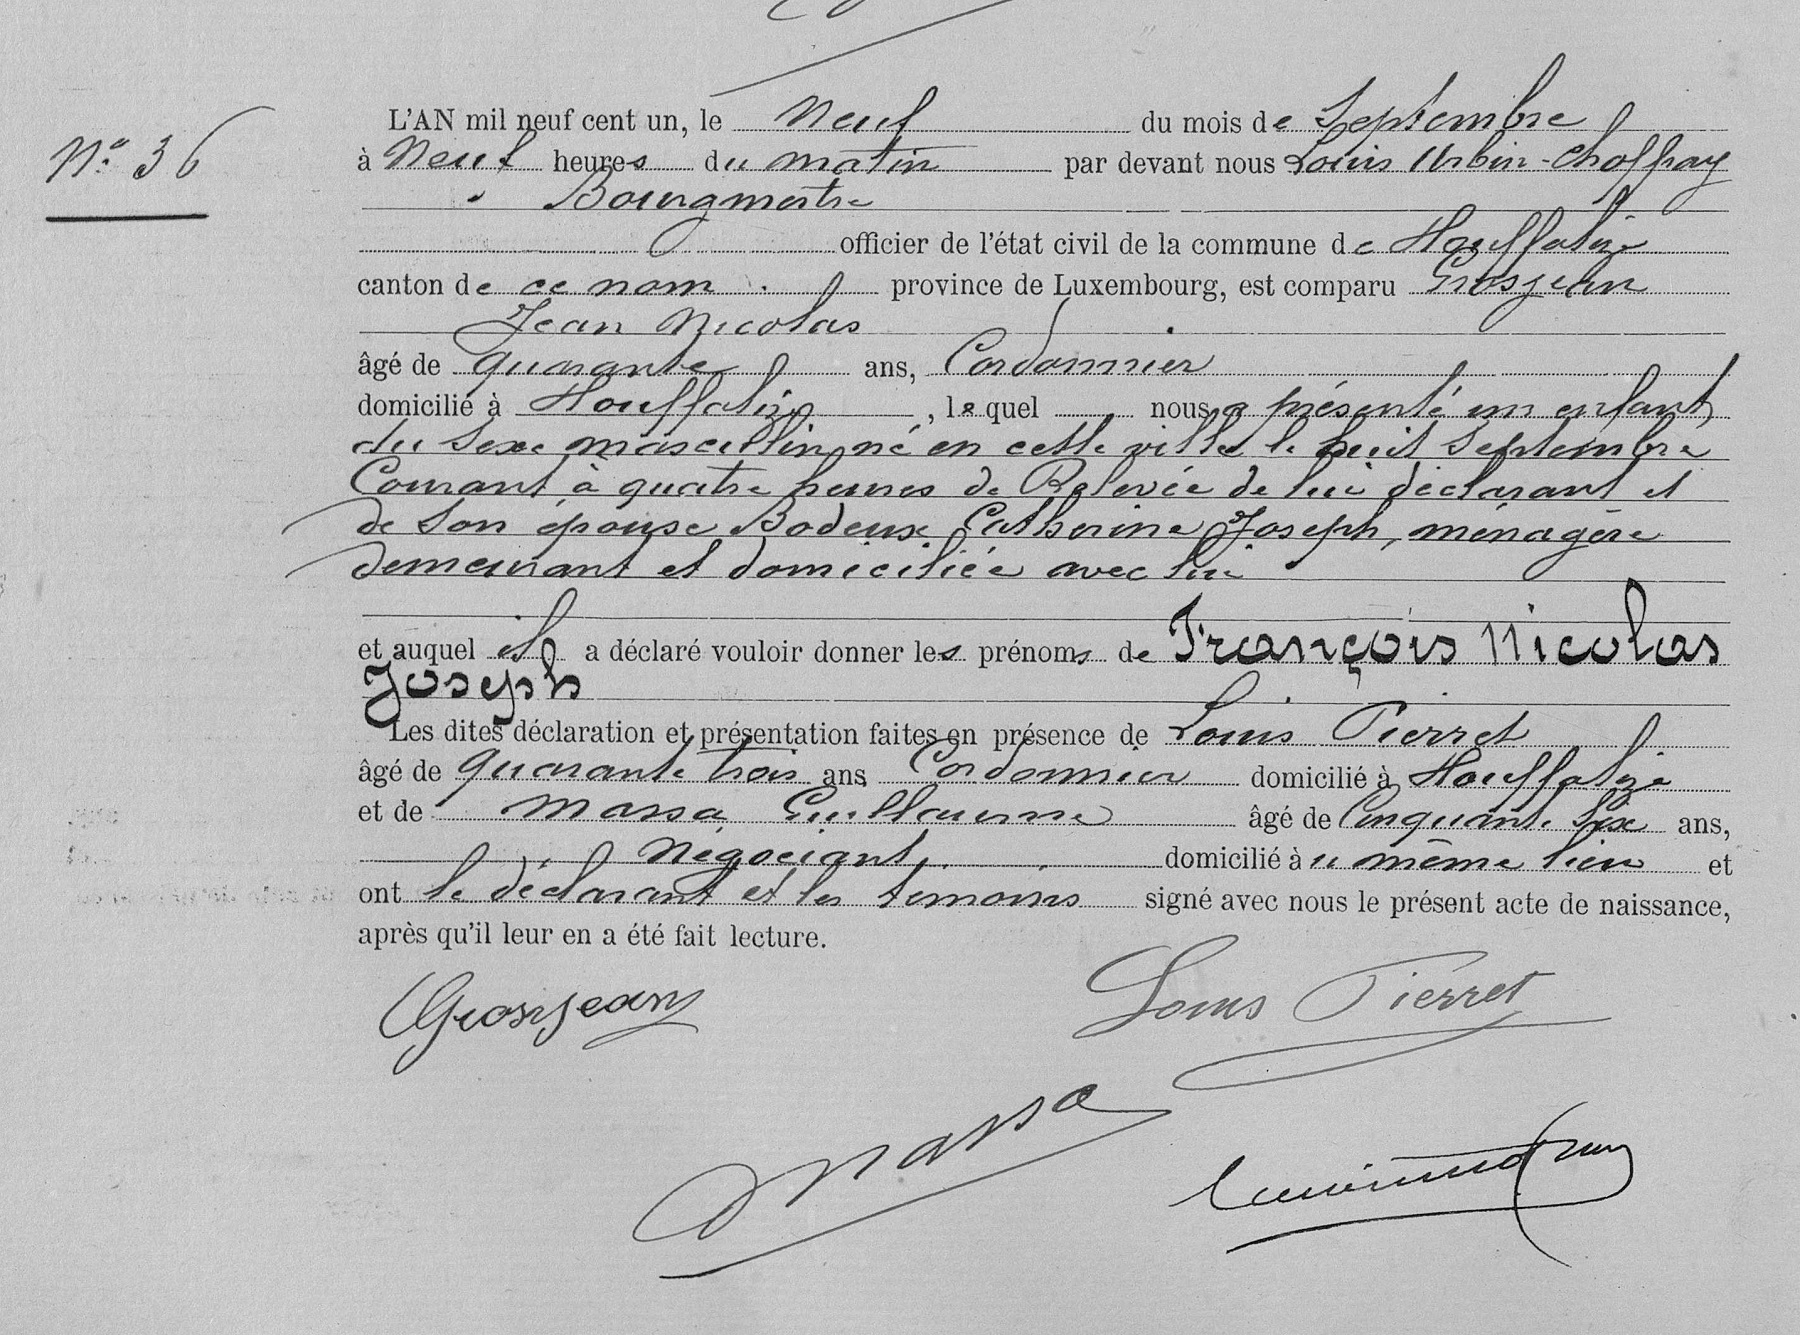 N° 36
L'AN mil neuf cent un, le Neuf du mois de Septembre
à Neuf heures du matin par devant nous Louis Urbin-Choffray
Bourgmestre
officier de l'état civil de la commune de Houffalize
canton de ce nom province de Luxembourg, est comparu Grosjean
Jean Nicolas
âgé de quarante ans, Cordonnier
domicilié à Houffalize, le quel nous a présenté un enfant
du sexe masculin né en cette ville le huit Septembre
Courant à quatre heures de Relevée de lui déclarant et
de son épouse Bodeux Catherine Joseph, ménagère
demeurant et domiciliée avec lui
et auquel il a déclaré vouloir donner les prénoms de François Nicolas
Joseph
Les dites déclaration et présentation faites en présence de Louis Pierret
âgé de quarante trois ans Cordonnier domicilié à Houffalize
et de Massa Guillaume âgé de Cinquante Six ans,
Négociant domicilié à u même lieu et
ont le déclarant et les temoins signé avec nous le présent acte de naissance,
après qu'il leur en a été fait lecture.
Grosjean
Louis Pierret
Massa